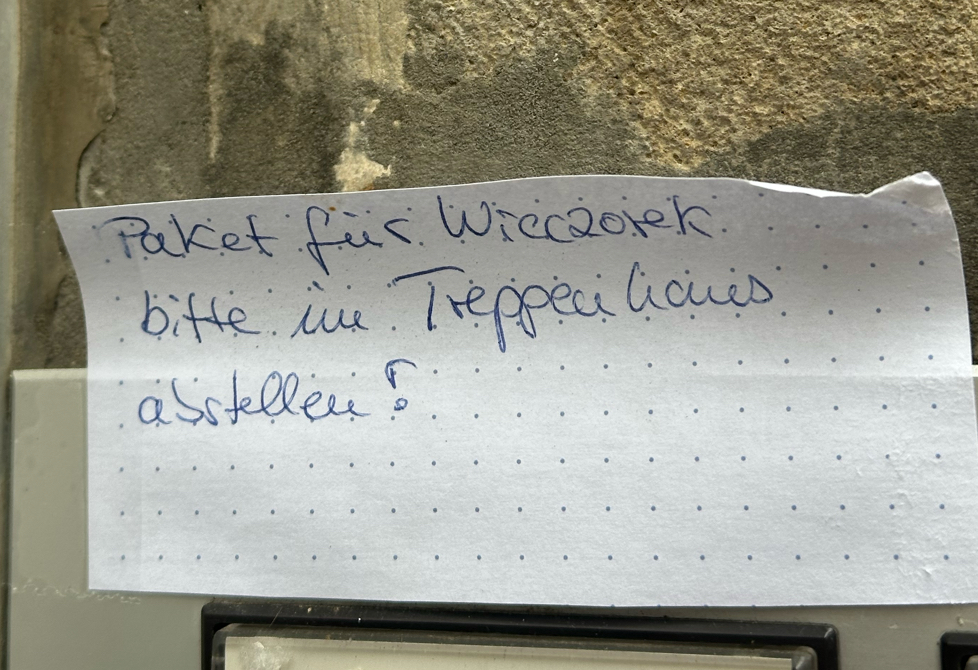 Paket für Wieczorek
bitte im Treppenhaus
abstellen!